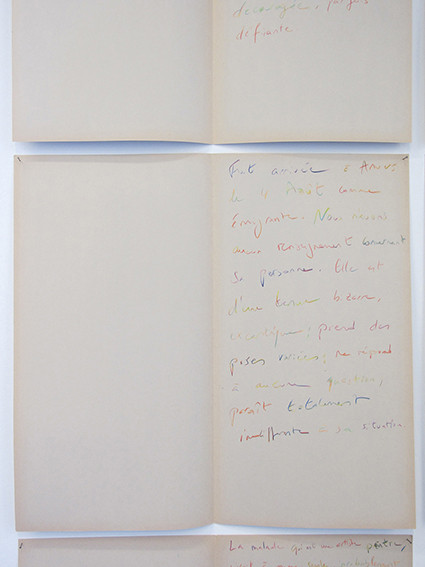 découragée, parfois
défiante
Fut amenée à Anvers
le 4 Août comme
émigrante. Nous n'avons
aucun renseignement concernant
sa personne. Elle est
d'une tenue bizarre,
excentrique : prend des
poses variées ; ne répond
à aucune question,
paraît totalement
indifférente à sa situation
La malade qui est une artiste peintre,